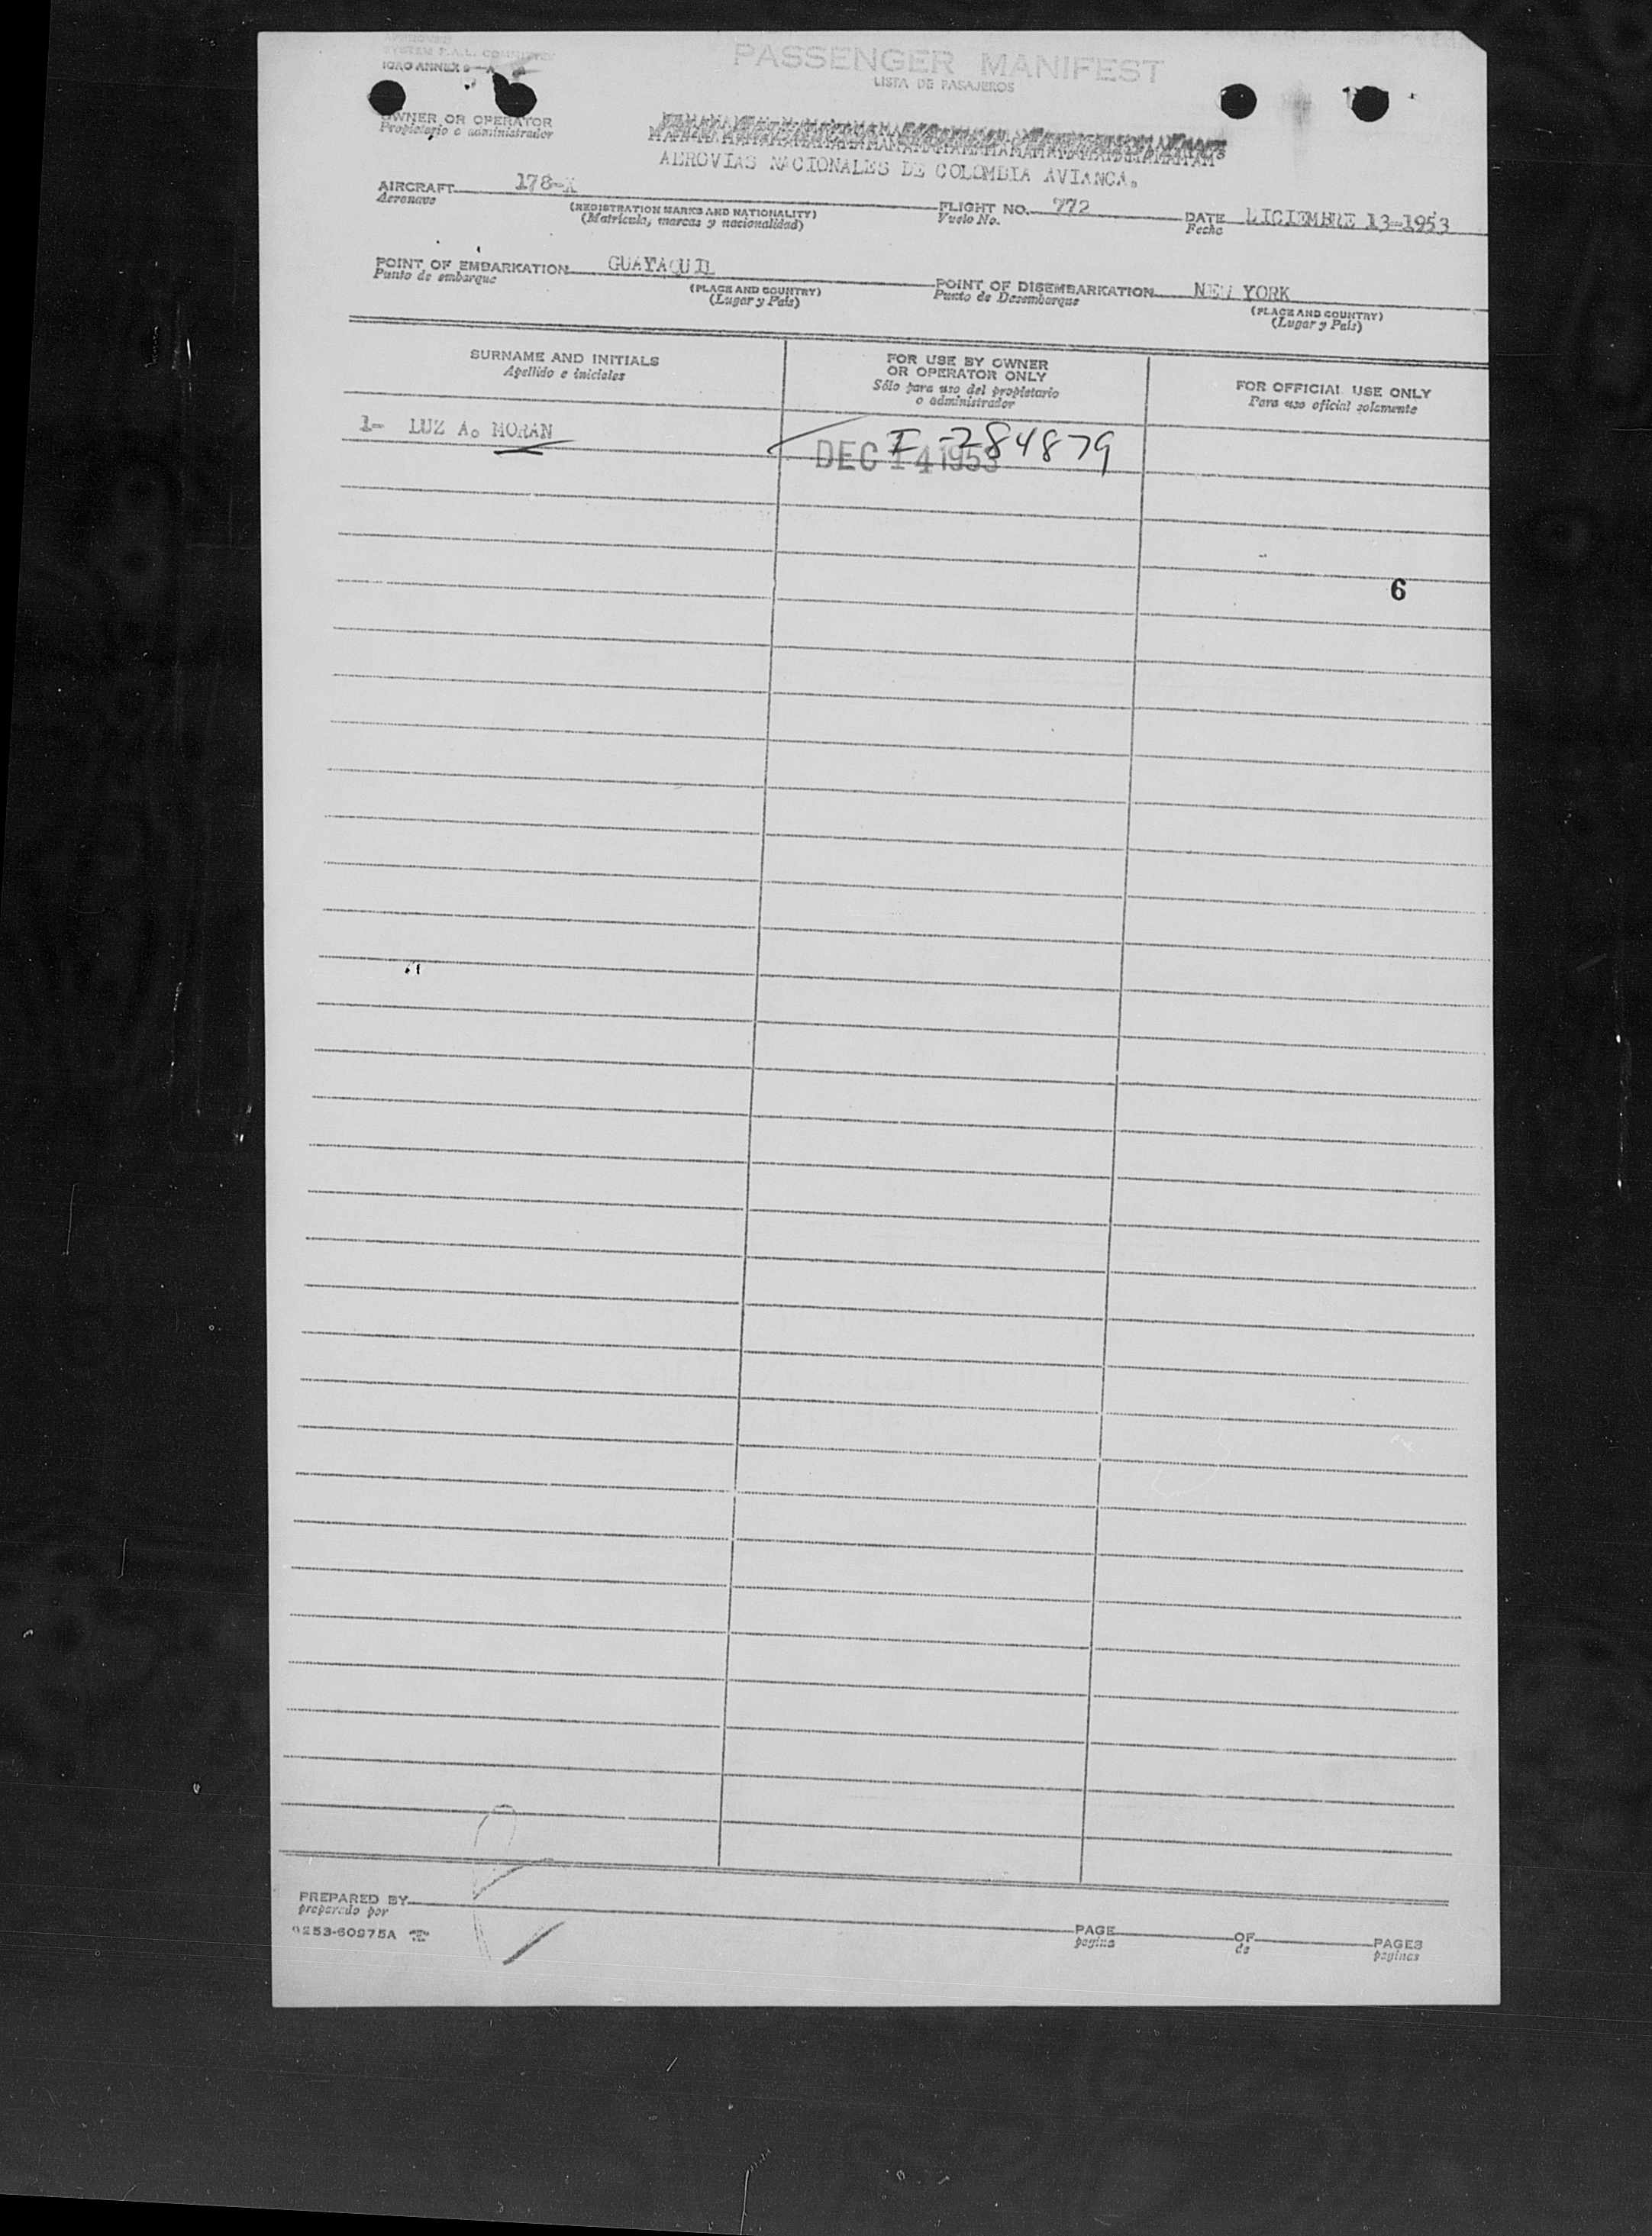 APPROVED
SYSTEM P.A.L.
ICAO ANNEX 9-A
PASSENGER MANIFEST
LISTA DE PASAJEROS
OWNER OR OPERATOR
Propietario o administrador
AEROVIAS NACIONALES DE COLOMBIA AVIANCA.
AIRCRAFT 178-X FLIGHT NO. 772 DATE DICIEMBRE 13-1953
Aeronave (REGISTRATION MARKS AND NATIONALITY) Vuelo No. Fecha
(Matricula, marcas y nacionalidad)
POINT OF EMBARKATION GUAYAQUIL POINT OF DISEMBARKATION NEW YORK
Punto de embarque (PLACE AND COUNTRY) Punto de Desembarque (PLACE AND COUNTRY)
(Lugar y País) (Lugar y País)
SURNAME AND INITIALS
Apellido e iniciales
FOR USE BY OWNER
OR OPERATOR ONLY
Sólo para uso del propietario
o administrador
FOR OFFICIAL USE ONLY
Para uso oficial solamente
1- LUZ A. MORAN I-284879
DEC 14 1953
6
PREPARED BY
preparado por
0253-60975A
PAGE OF PAGES
pagina de paginas